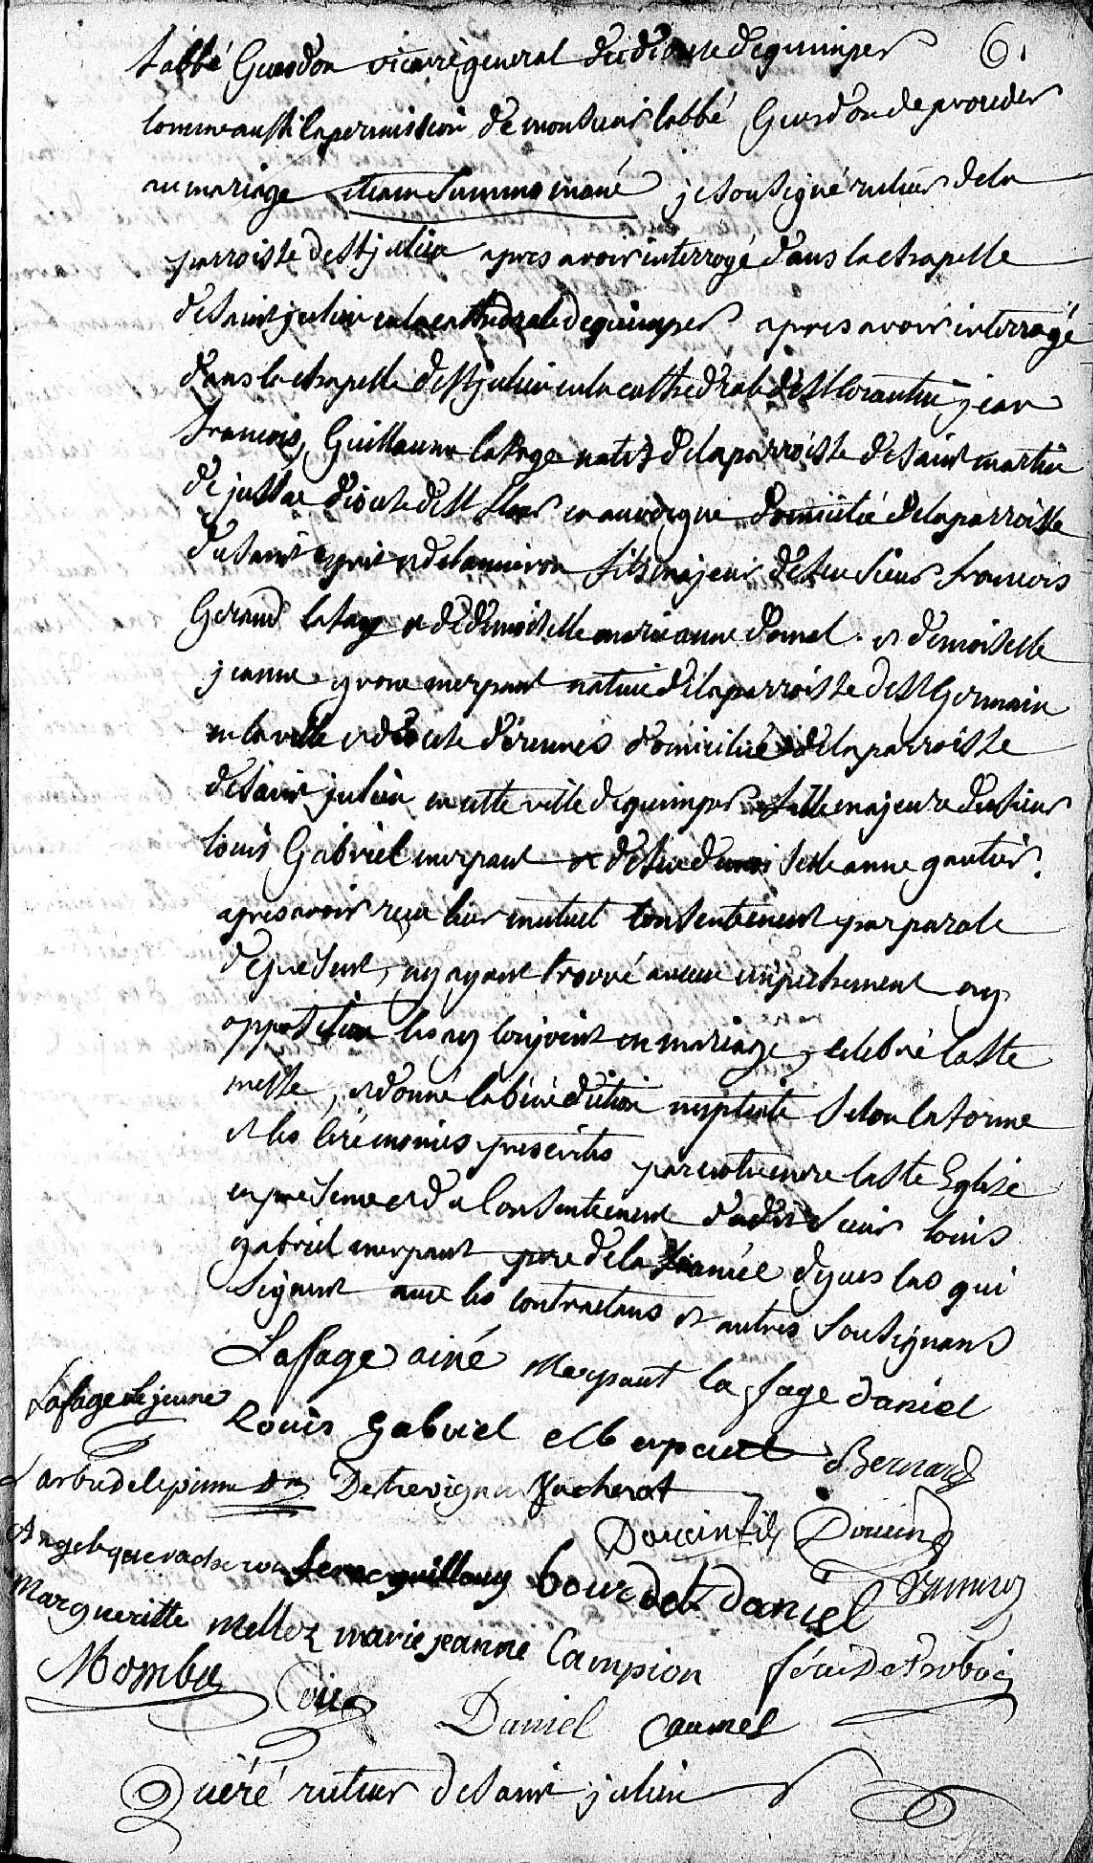 labbé Guesdon vicaire general du diocese de quimper 6.
comme aussi la permission de monsieur labbé Guesdon de proceder
au mariage etiam summo mané je soussigné recteur de la
parroisse de st julien apres avoir interrogé dans la chapelle
de saint julien en la cathedrale de quimper apres avoir interrogé
dans la chapelle de st julien en la cathedrale de st Corantin jean
francois Guillaume lafage natif de la parroisse de saint martin
de jussac diocese de st flour en auvergne domicilié de la parroisse
du saint esprit fils majeur de feu sieur francois
Gerand lafage et de demoiselle marie anne et demoiselle
jeanne yvone merpaut native de la parroisse de st Germain
en la ville et diocese de rennes domiciliée de la parroisse
de saint julien en cette ville de quimper fille majeure du sieur
louis Gabriel merpaut et de feue demoiselle anne gautier.
apres avoir recu leur mutuel consentement par parole
de present, ny ayant trouvé aucun empechement ny
opposition les ay conjoint en mariage, celebré la ste
messe, et donné la bénédiction nuptiale selon la forme
et les cérémonies prescrites par notre mere la ste Eglise
en presence et du consentement dudit sieur louis
gabriel merpaut pere de la fiancée dyves las qui
signent avec les contractans et autres soussignans
Laffage ainé Merpaut la fage daniel
Lafage le jeune Louis Gabriel Merpaut Bernard
Detrevigner Vacherot
Doucin fils Doucin
Angelique vacherot bourdet daniel
Margueritte Mellez marie jeanne Campion
Daniel
Quéré recteur de saint julien